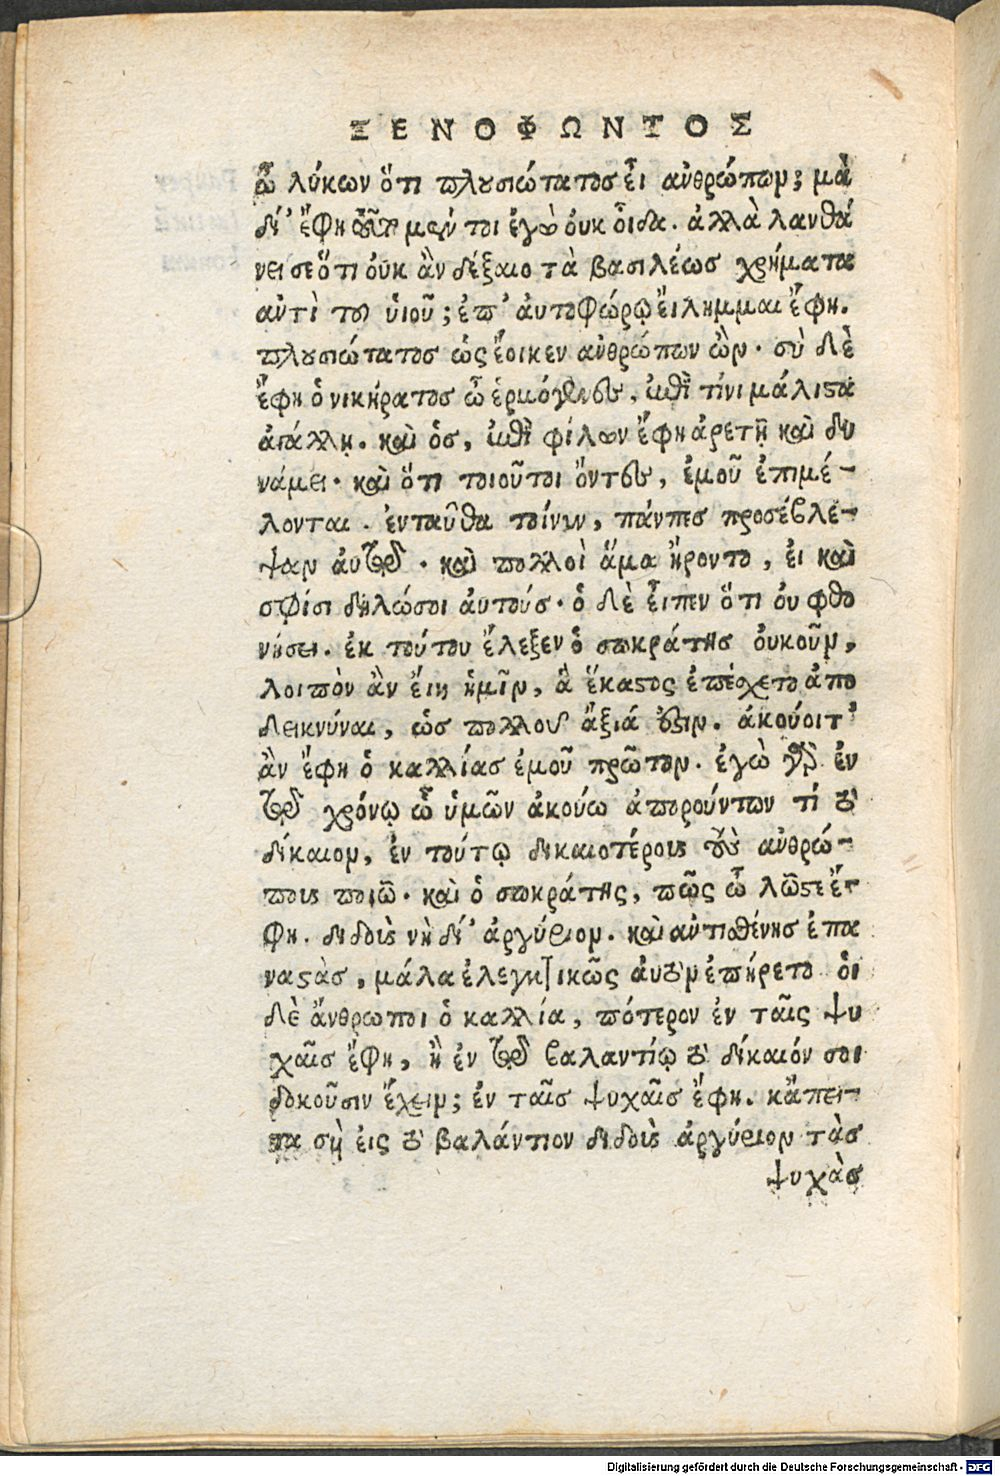 ΞΕΝΟΦΩΝΤΟΣ
ὦ λύκων ὅτι πλουσιώτατος εἶ ἀνθρώπων; μὰ
δί' ἔφη τοῦτο μέν τοι ἐγὼ οὐκ οἶδα. ἀλλὰ λανθά
νει σε ὅτι οὐκ ἂν δέξαιο τὰ βασιλέως χρήματα
ἀντὶ τοῦ ὑιοῦ; ἐπ' ἀυτοφώρῳ ἔιλημμαι ἔφη.
πλουσιώτατος ὡς ἔοικεν ἀνθρώπων ὤν. σὺ δὲ
ἔφη ὁ νικήρατος ὦ ἑρμόγενες, ἐπὶ τίνι μάλιστα
ἀγάλλῃ. καὶ ὃς, ἐπὶ φίλων ἔφη ἀρετῇ καὶ δυ
νάμει. καὶ ὅτι τοιοῦτοι ὄντες, ἐμοῦ ἐπιμέ-
λονται. ἐνταῦθα τοίνυν, πάντες προσέβλε-
ψαν ἀυτῷ. καὶ πολλοὶ ἅμα ἤροντο, ἐι καὶ
σφίσι δηλώσοι ἀυτούς. ὁ δὲ εἶπεν ὅτι οὐ φθο
νήσει. ἐκ τούτου ἔλεξεν ὁ σωκράτης οὐκοῦν,
λοιπὸν ἂν ἔιη ἡμῖν, ἃ ἕκαστος ὑπέσχετο ἀπο
δεικνύναι, ὡς πολλοῦ ἄξιά ἐστιν. ἀκούοιτ'
ἂν ἔφη ὁ καλλίας ἐμοῦ πρῶτον. ἐγὼ γὰρ ἐν
τῷ χρόνῳ ὦ ὑμῶν ἀκούω ἀπορούντων τί τὸ
δίκαιον, ἐν τούτῳ δικαιοτέρους τοὺς ἀνθρώ-
πους ποιῶ. καὶ ὁ σωκράτης, πῶς ὦ λῷστε ἔ-
φη. διδοὺς νὴ δί' ἀργύριον. καὶ ἀντισθένης ἐπα
ναστὰς, μάλα ἐλεγκτικῶς ἀυτὸν ἐπήρετο οἱ
δὲ ἄνθρωποι ὁ καλλία, πότερον ἐν ταῖς ψυ
χαῖς ἔφη, ἢ ἐν τῷ βαλαντίῳ τὸ δίκαιόν σοι
δοκοῦσιν ἔχειν; ἐν ταῖς ψυχαῖς ἔφη. κἄπει-
τα σὺ εἰς τὸ βαλάντιον διδοὺς ἀργύριον τὰς
ψυχὰς